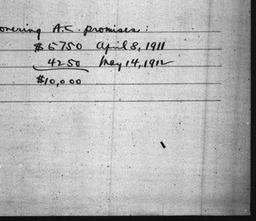 overing A.C. promises:
$5750 April 8, 1911
4250 May 14, 1912
$10,000